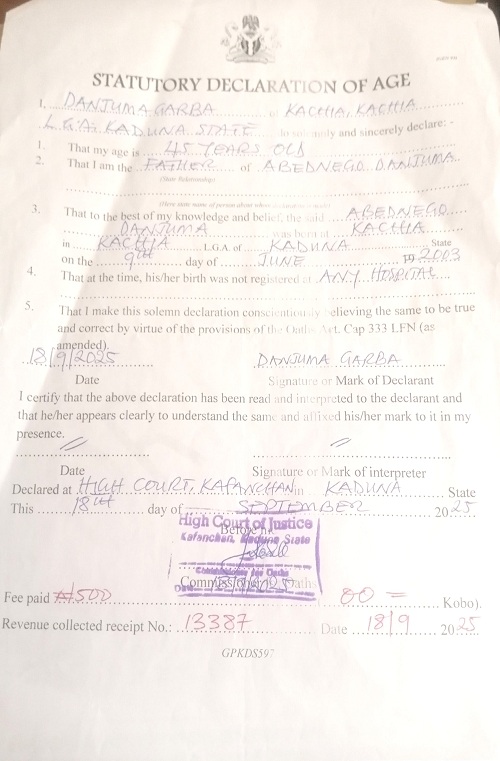 STATUTORY DECLARATION OF AGE
I, DANJUMA GARBA of KACHIA, KACHIA
L.G.A. KADUNA STATE do solemnly and sincerely declare: -
1. That my age is 45 YEARS OLD
2. That I am the FATHER of ABEDNEGO DANJUMA
(State Relationship)
(Here state name of person about whom
3. That to the best of my knowledge and belief, the said ABEDNEGO
DANJUMA was born at KACHIA
in KACHIA L.G.A. of KADUNA State
on the 9TH day of JUNE 19 2003
4. That at the time, his/her birth was not registered at ANY HOSPITAL
5. That I make this solemn declaration conscientiously believing the same to be true
and correct by virtue of the provisions of the Oaths Act, Cap 333 LFN (as
amended).
18/9/2025 DANJUMA GARBA
Date Signature or Mark of Declarant
I certify that the above declaration has been read and interpreted to the declarant and
that he/her appears clearly to understand the same and affixed his/her mark to it in my
presence.
Date Signature or Mark of interpreter
Declared at HIGH COURT, KAFANCHAN in KADUNA State
This 18TH day of SEPTEMBER 2025
High Court of Justice
Before me
Kafanchan, Kaduna State
Commissioner for Oaths
Commissioner for Oaths
Fee paid ₦500 00 = Kobo).
Revenue collected receipt No.: 13387 Date 18/9 2025
GPKDS597